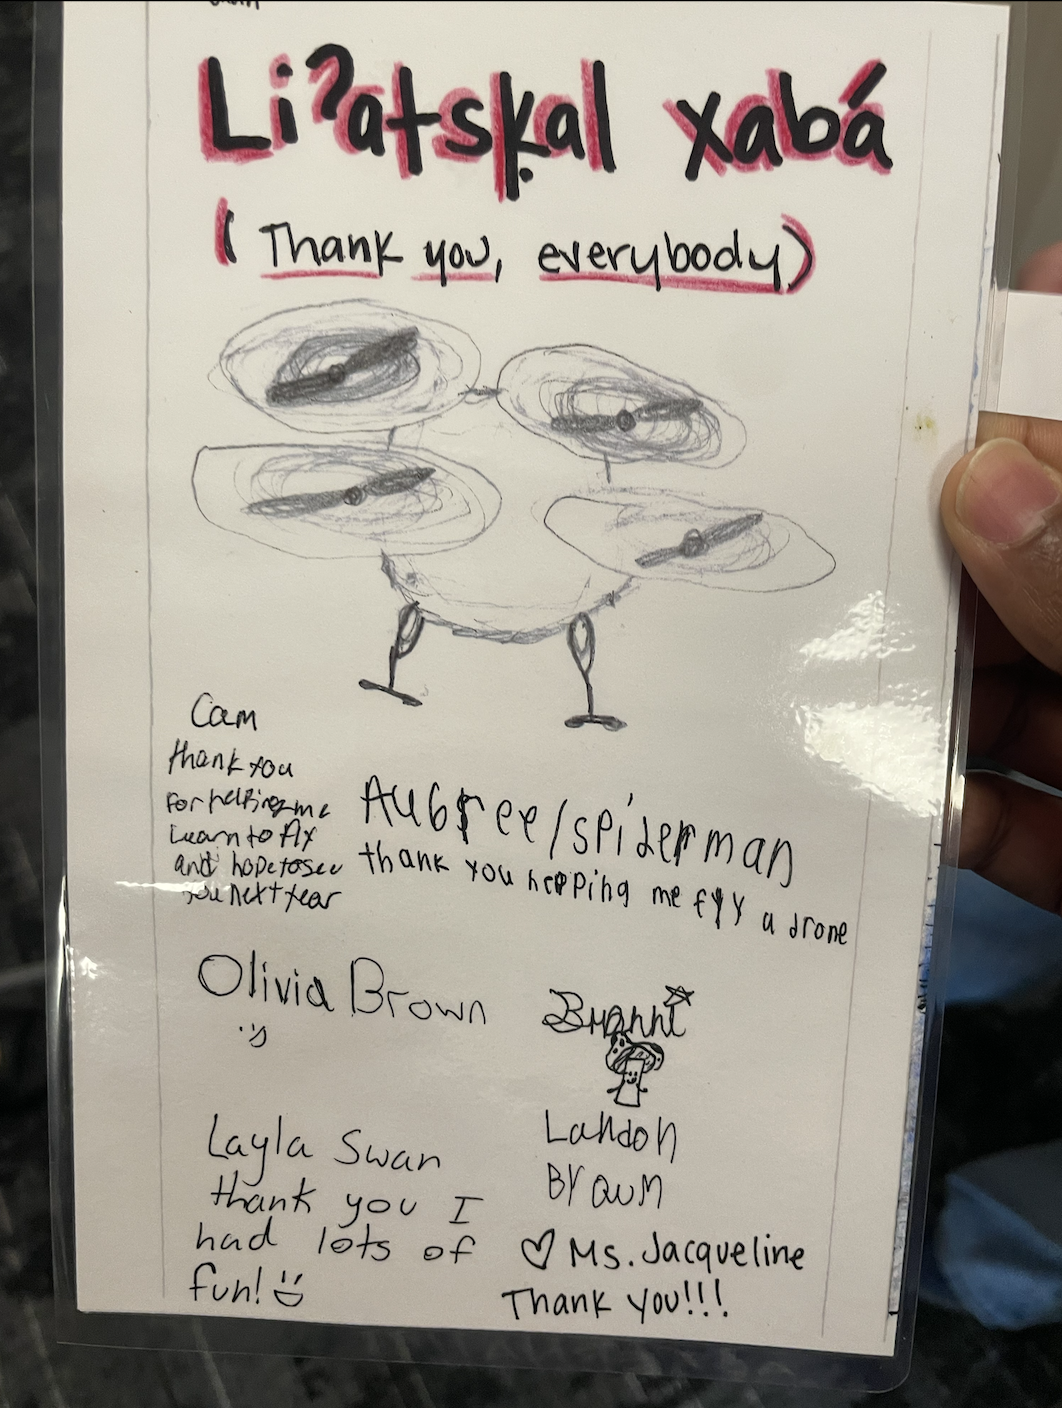 Liʔatsḳal xabá
(Thank you, everybody)
Cam
thank you
For helping me
Learn to fly
and hope to see
you next year
Aubree/spiderman
thank you helping me fly a drone
Olivia Brown
:)
Landon
Brown
Layla Swan
thank you I
had lots of
fun!
♡ Ms. Jacqueline
Thank you!!!